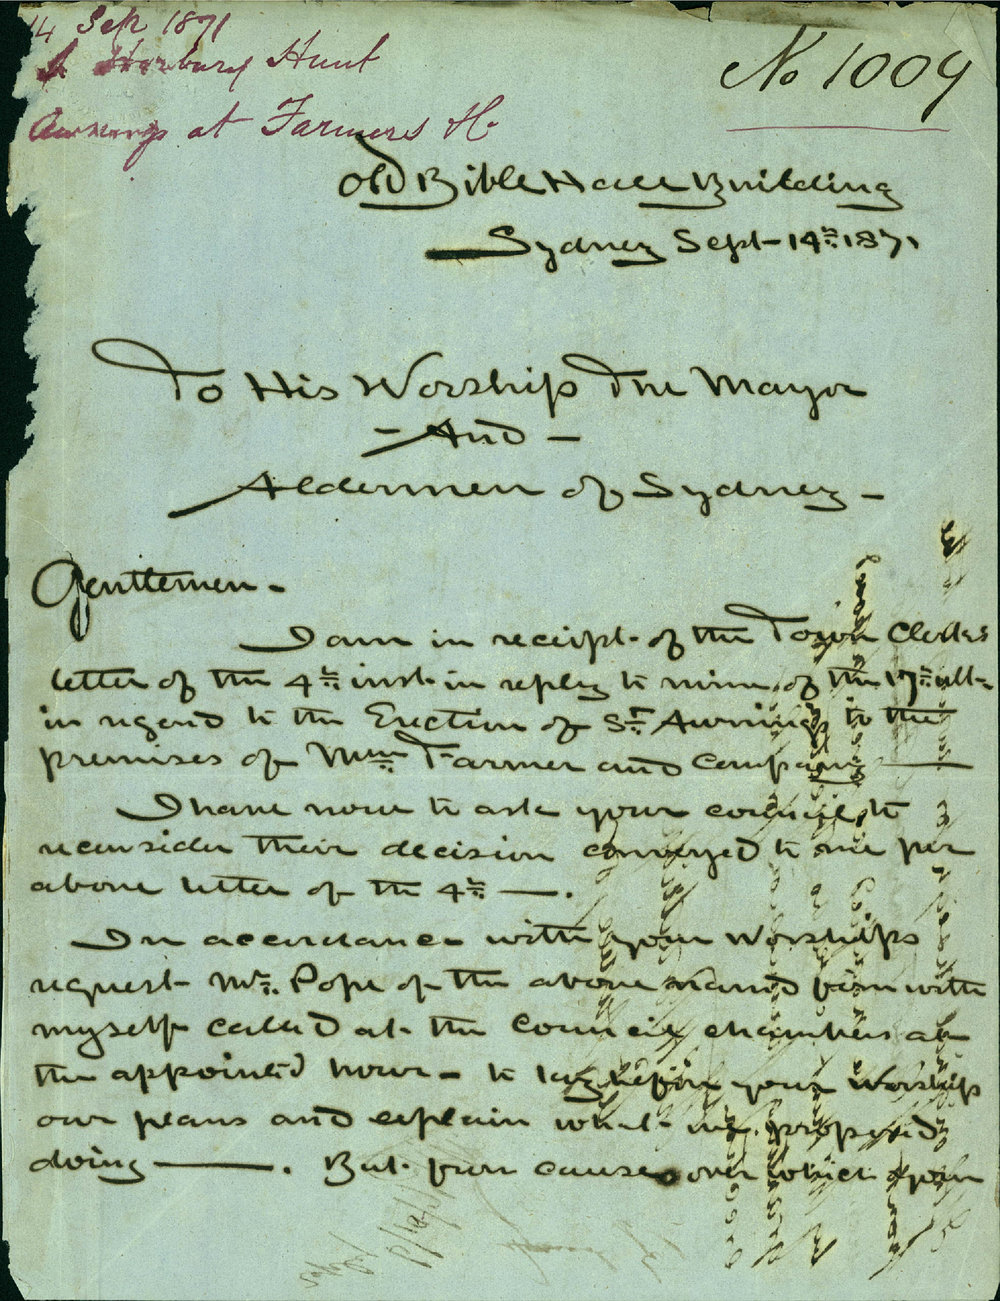 14 Sep 1871
J Horbury Hunt
Awnings at Farmers H.
No 1009
Old Bible Hall Building
Sydney Sept - 14th: 1871
To His Worship The Mayor
- And -
Aldermen of Sydney -
Gentlemen -
I am in receipt of the Town Clerks
letter of the 4th: inst in reply to mine of the 17th: ult
in regard to the Erection of St: Awnings to the
premises of Farmer and Company
I have now to ask your council to
reconsider their decision conveyed to me per
above letter of the 4th: - .
In accordance with your Worships
request - Mr: Pope of the above named firm with
myself called at the Council chambers at
the appointed hour - to lay before your Worship
our plans and explain what we proposed
doing - . But from causes over which